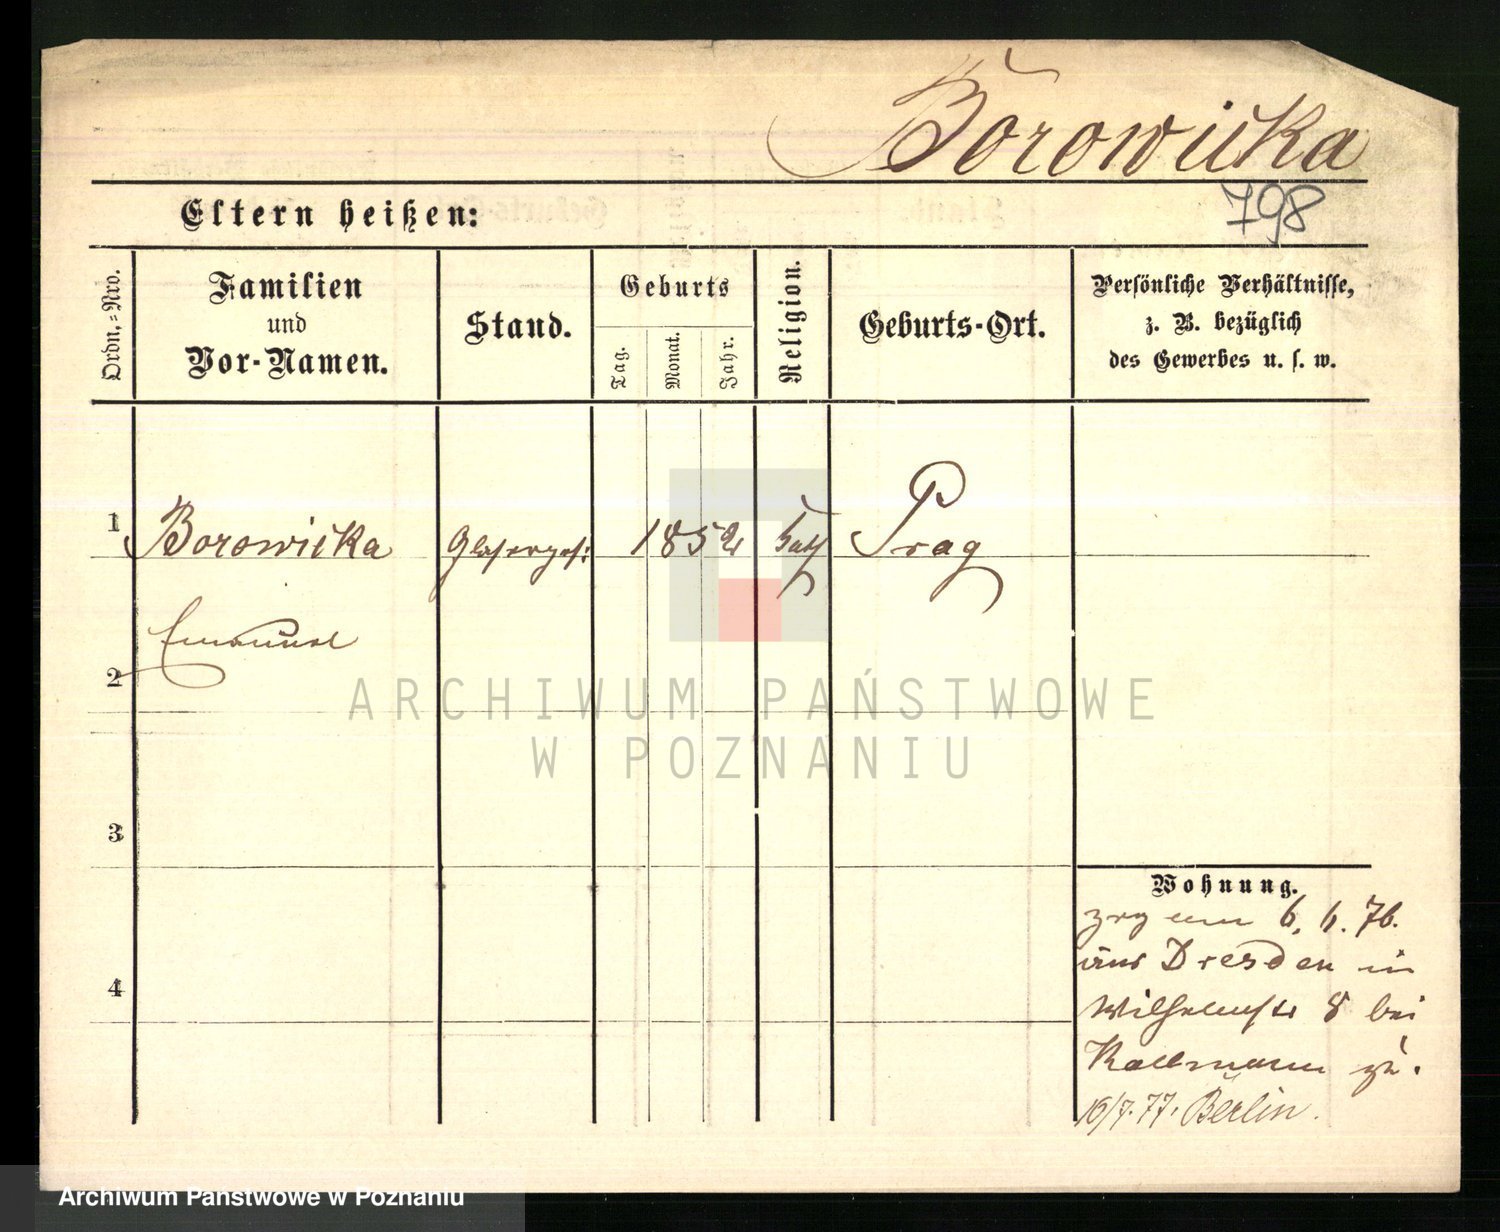 Borowička
798
Eltern heißen:
Ordn.=Nro.
Familien
und
Vor-Namen.
Stand.
Geburts
Tag.
Monat.
Jahr.
Religion.
Geburts-Ort.
Persönliche Verhältnisse,
z. B. bezüglich
des Gewerbes u. s. w.
1
Borowička
Glasergeh:
1852
kath
Prag
Emanuel
2
ARCHIWUM PAŃSTWOWE
W POZNANIU
3
Wohnung.
zog am 6. 6. 76.
aus Dresden in
4
Wilhelmstr 8 bei
zu.
16/7. 77. Berlin.
Archiwum Państwowe w Poznaniu